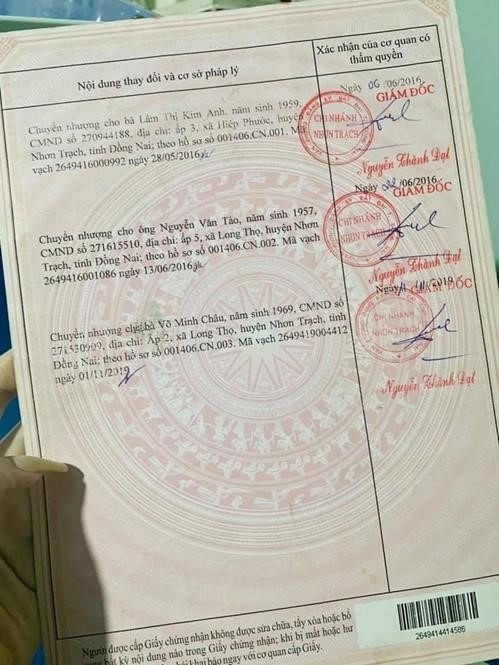 Nội dung thay đổi và cơ sở pháp lý
Xác nhận của cơ quan có
thẩm quyền
Chuyển nhượng cho bà Lâm Thị Kim Anh, năm sinh 1959,
CMND số 270944188, địa chỉ: ấp 3, xã Hiệp Phước, huyện
Nhơn Trạch, tỉnh Đồng Nai; theo hồ sơ số 001406.CN.001. Mã
vạch 2649416000992 ngày 28/05/2016
Ngày 06/06/2016
GIÁM ĐỐC
CHI NHÁNH
NHƠN TRẠCH
Nguyễn Thành Đạt
Chuyển nhượng cho ông Nguyễn Văn Tào, năm sinh 1957,
CMND số 271615510, địa chỉ: ấp 5, xã Long Thọ, huyện Nhơn
Trạch, tỉnh Đồng Nai; theo hồ sơ số 001406.CN.002. Mã vạch
2649416001086 ngày 13/06/2016
Ngày 22/06/2016
GIÁM ĐỐC
CHI NHÁNH
NHƠN TRẠCH
Nguyễn Thành Đạt
Chuyển nhượng cho bà Võ Minh Châu, năm sinh 1969, CMND số
271530909, địa chỉ: Ấp 2, xã Long Thọ, huyện Nhơn Trạch, tỉnh
Đồng Nai; theo hồ sơ số 001406.CN.003. Mã vạch 2649419004412
ngày 01/11/2019
Ngày 2019
GIÁM ĐỐC
CHI NHÁNH
NHƠN TRẠCH
Nguyễn Thành Đạt
Người được cấp Giấy chứng nhận không được sửa chữa, tẩy xóa hoặc bổ
bất kỳ nội dung nào trong Giấy chứng nhận; khi bị mất hoặc hư
khai báo ngay với cơ quan cấp Giấy.
2649414414586